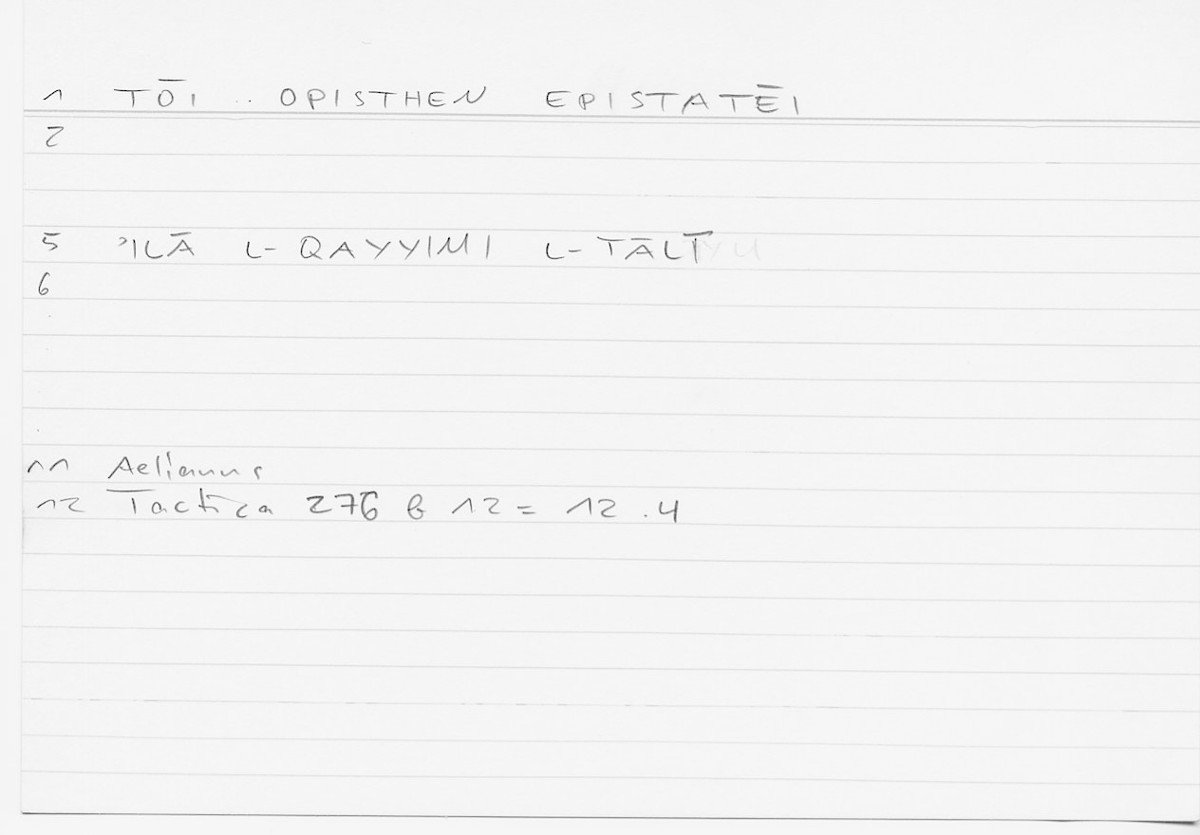 1 TŌI .. OPISTHEN EPISTATĒI
2
5 ʾILĀ L-QAYYIMI L-TĀLĪ
6
11 Aelianus
12 Tactica 276 b 12 = 12.4